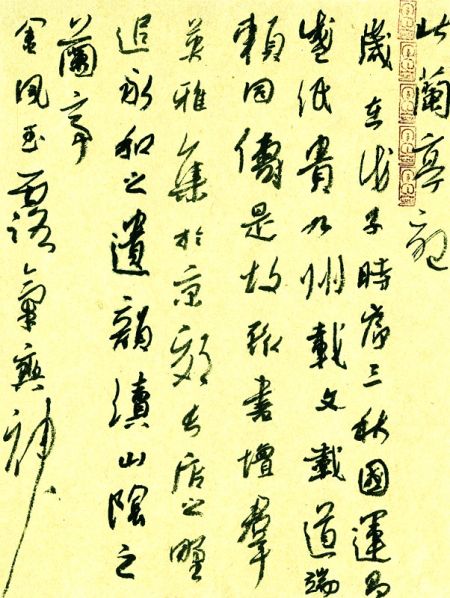 北蘭亭
歲在戊子時序三秋國運昌
盛紙貴九州載文載道端
賴同儔是故書壇群
英雅集於京郊之野
追永和之遺韻續山陰之
蘭亭
金風玉露氣爽神